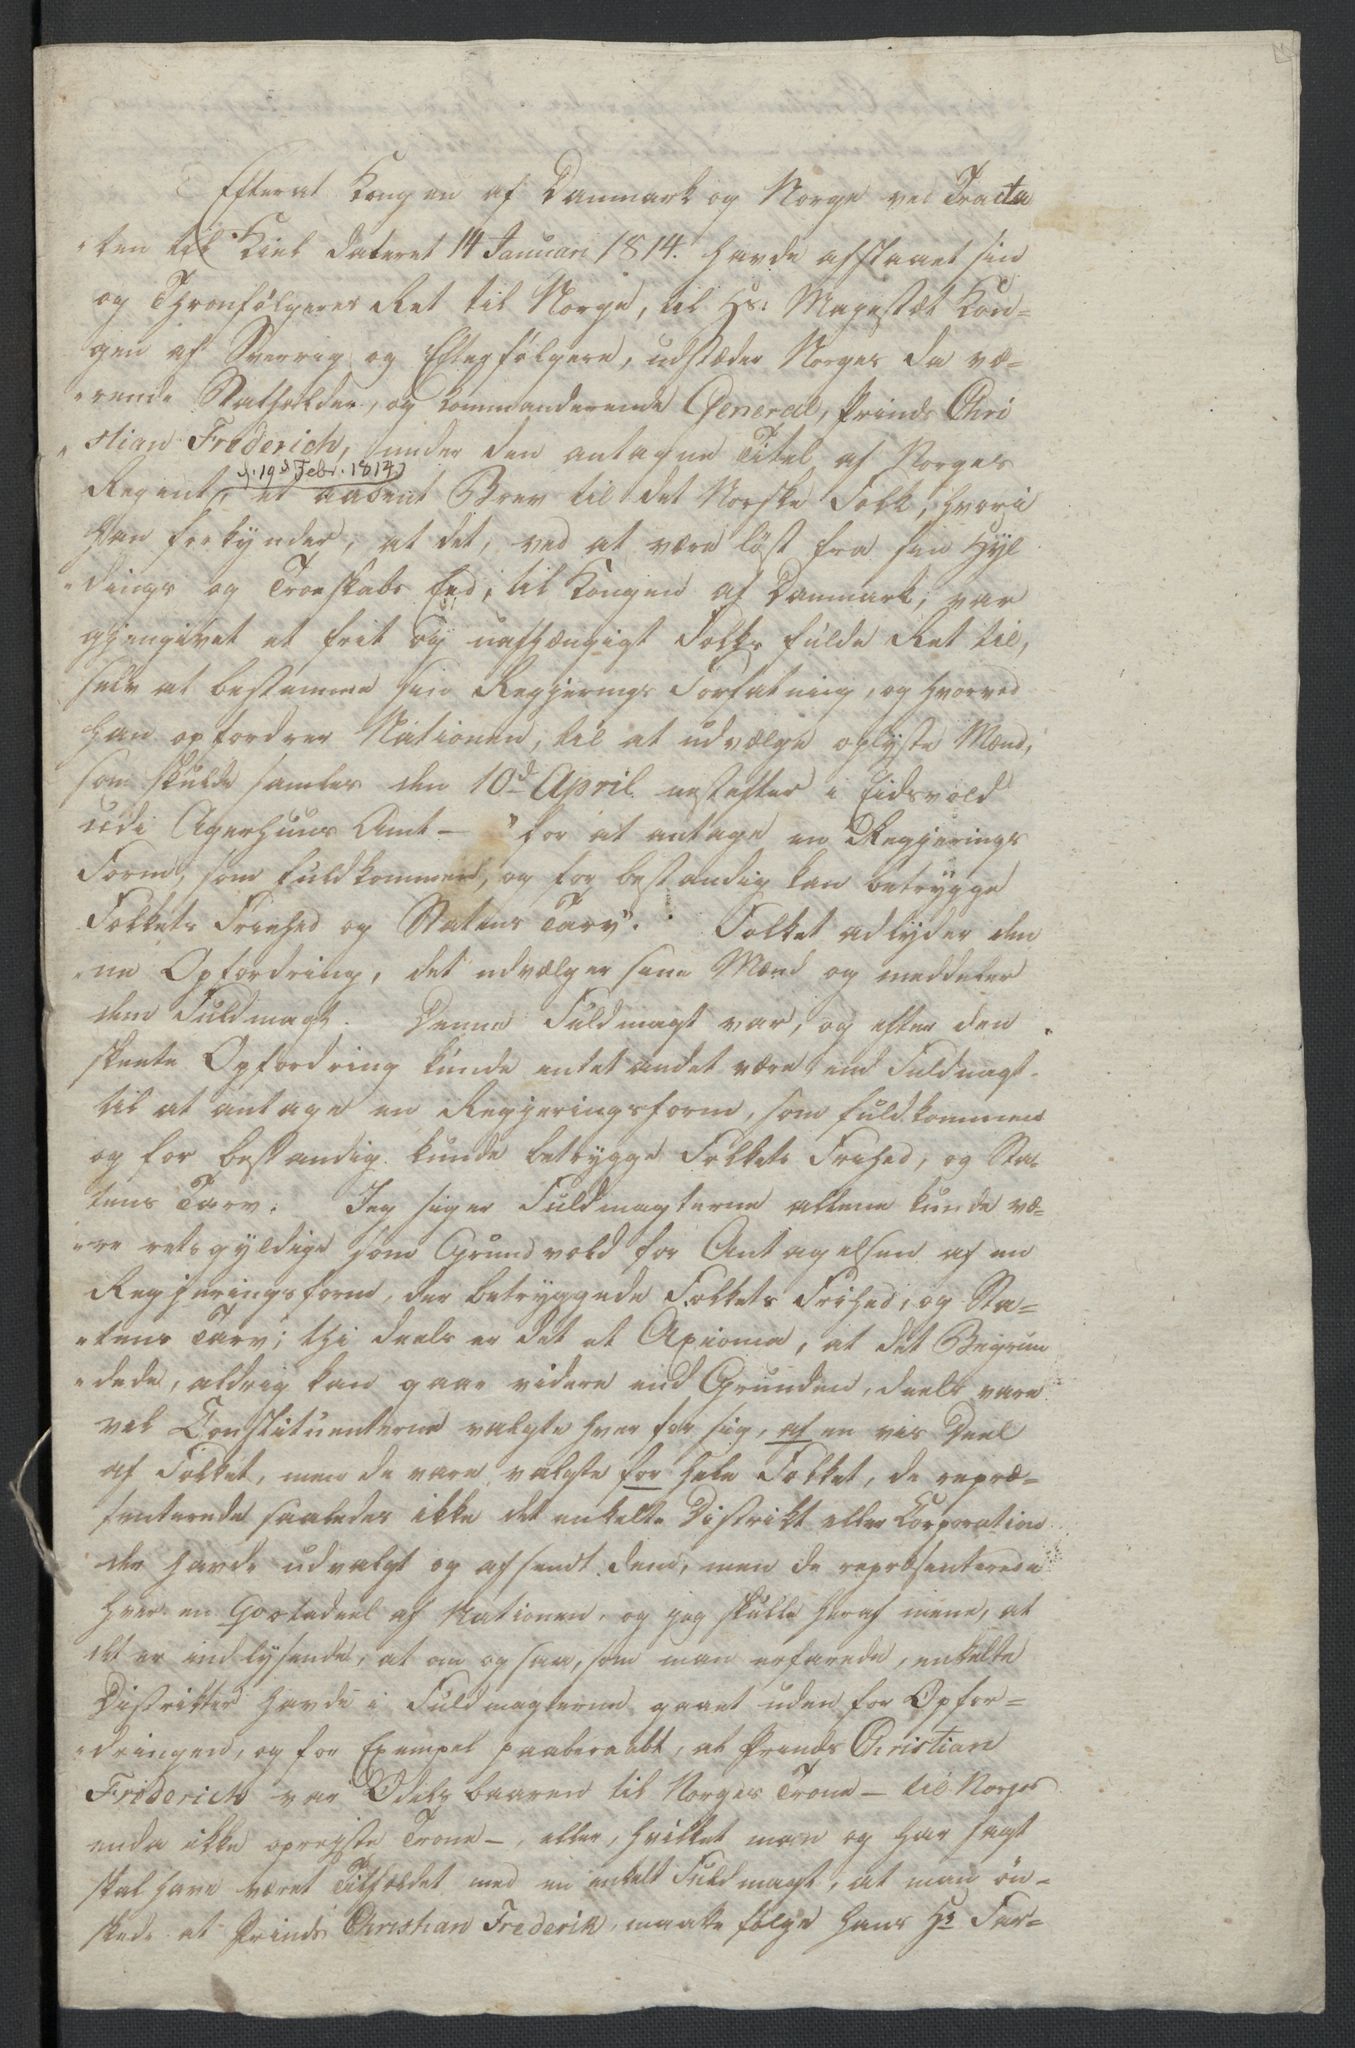 Efterat Kongen af Danmark og Norge ved Tracta
-ten til Kiel dateret 14 Januari 1814. havde afstaaet sin
og Thronfölgeres Ret til Norge, til Hs: Majestæt Kon=
gen af Sverrig og Efterfölgere, udstæder Norges da væ=
-rende Statholder, og kommanderende General, Prinds Chri
-stian Frederich, under den antagne Titel af Norges
d. 19d Febr. 1814
Regent, et aabent Brev til det Norske Folk, hvori
han forkynder, at det, ved at være löst fra sin Hyl
-dings og Troeskabs Eed, til Kongen af Danmark, var
gjengivet et frit og uafhængigt Folks fulde Ret til,
selv at bestemme sin Regjerings Forfatning, og hvorved
han opfordrer Nationen, til at udvælge oplyste Mænd,
som skulde samles den 10d April nestefter i Eidsvold
udi Agerhuus Amt - "for at antage en Regjerings
Form, som fuldkommen, og for bestandig kan betrygge
Folkets Friehed og Statens Tarv". Folket adlyder den
-ne Opfordring, det udvælger sine Mænd og meddeler
dem Fuldmagt. Denne Fuldmagt var, og efter den
skeete Opfordring kunde intet andet være end Fuldmagt
til at antage en Regjeringsform, som fuldkommen
og for bestandig kunde betrygge Folkets Frihed, og Sta-
tens Tarv. Jeg siger Fuldmagterne allene kunde væ=
-re retsgyldige som Grundvold for Antagelsen af en
Regjeringsform, der betryggede Folkets Frihed, og Sta=
-tens Tarv; thi deels er det et Axioma, at det Begrun
-dede, aldrig kan gaae videre end Grunden, deels vare
vel Constituenterne valgte hver for sig, af en vis Deel
af Folket, men de vare valgte for hele Folket, de repræ=
senterede saaledes ikke det enkelte Distrikt eller Corporation
der havde udvalgt og afsendt dem, men de repræsenterede
hver en Qvotadeel af Nationen, og jeg skulle heraf mene, at
det er indlysende, at om ogsaa, som man erfarede, enkelte
Districter havde i Fuldmagterne gaaet uden for Opfor=
-dringen, og for Exempel paaberaabt, at Prinds Christian
Friderich var Odelsbaaren til Norges Trone - til Norges
enda ikke opreiste Trone -, eller, hvilket man og har sagt
skal have været Tilfældet med en enkelt Fuldmagt, at man ön=
skede at Prinds Christian Frederik maatte følge hans Hs For=